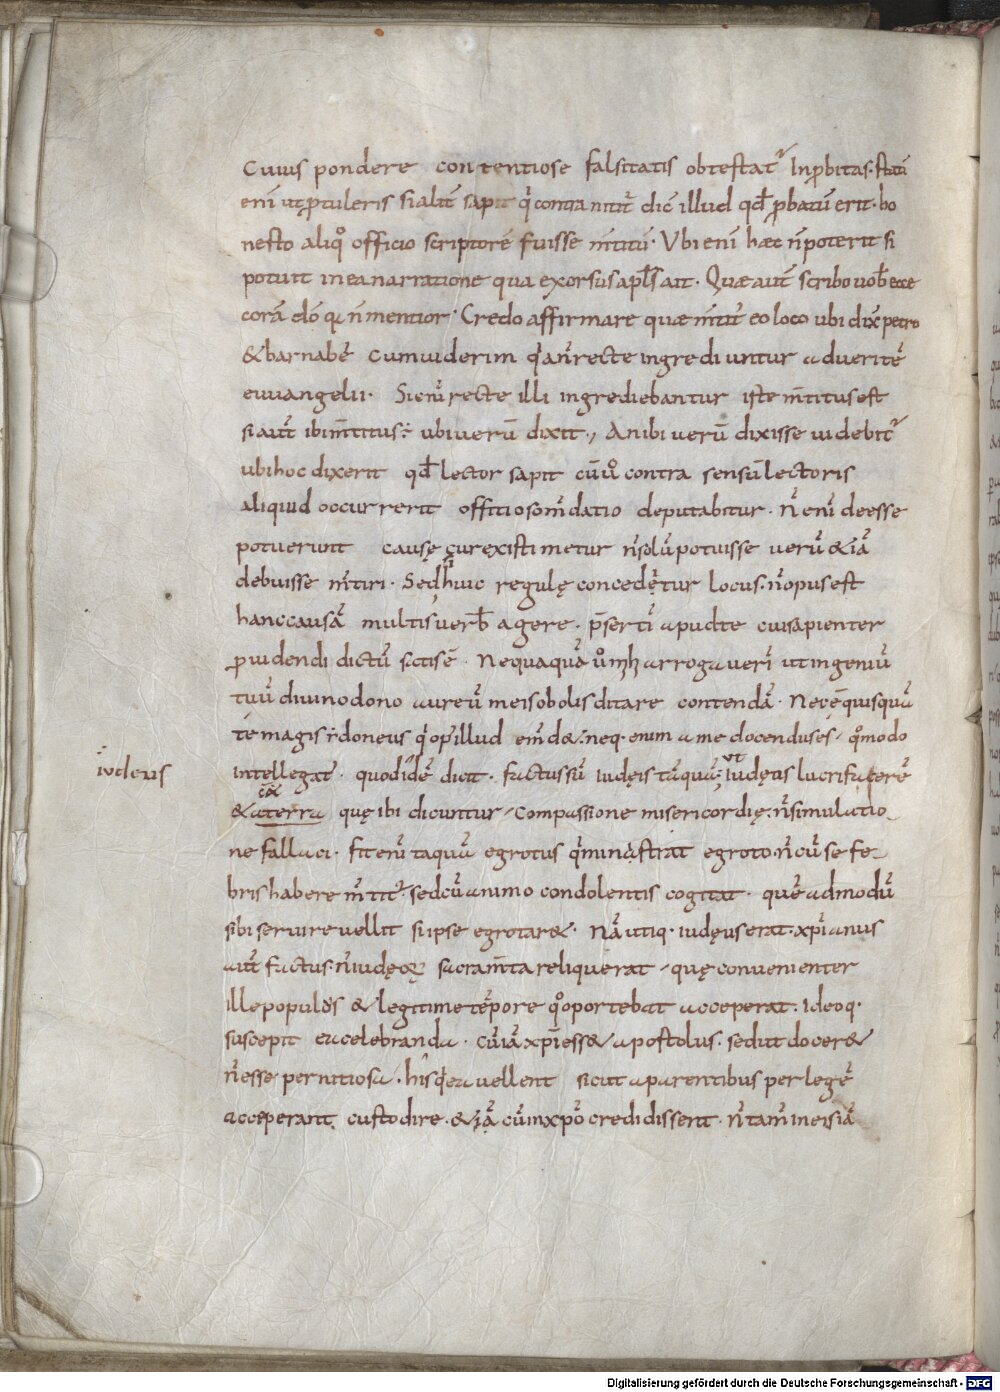 Cuius pondere contentiose falsitatis obtestat᷑ inp̱bitas. statū
eni ut ꝓtuleris si alit̄ sapit q̇ contra nitit᷑ dic̄ illud qđ ꝓbatū erit. ho
nesto aliq̊ officio scriptorē fuisse m̄titū. Ubi eni hæc n̄ poterit si
potuit in ea narratione qua exorsus apłs ait. Quæ aut̄ scribo uob̄ ecce
corā dō q̇a n̄ mentior. Credo affirmare quæ m̄tit᷑ eo loco ubi dix̄ petro
& barnabē Cum uiderim q̇a n̄ recte ingrediuntur ad ueritē
euuangelii. Si eni recte illi ingrediebantur iste m̄titus est
si aut̄ ibi m̄titus; ubi uerū dixit, An ibi uerū dixisse uidebit᷑
ubi hoc dixerit qđ lector sapit cū ů contra sensū lectoris
aliquid occurrerit offitioso m̄datio deputabitur. N̄ eni deesse
potuerunt causę cur existimetur n̄ solū potuisse uerū & iā
debuisse m̄tiri. Sed huic regulę concedet᷑ur locus. n̄ opus est
hanc causā multis uerb̄ agere. p̄serti apud te cui sapienter
ꝓuidendi dictū satis ē. Nequaquā ů mh arrogaueri ut ingeniū
tuū diuino dono aureū meis obolis ditare contendā. Nec ē quisquā
te magis idoneus q̇ op᷑ illud em̄d&. neq. enim a me docendus es, q̊modo
intellegat᷑. quod idē dicit. factus sū iudęis tāquā; iudęus ut iudęis lucrifacerē
& cetera quę ibi dicuntur, Compassione misericordię. n̄ simulatio
ne fallaci. fit eni taquā egrotus q̇ ministrat egroto. n̄ cū se fe
bris habere m̄tit᷑. sed cū animo condolentis cogitat. quē admodū
sibi seruire uellit si ipse egrotar&. Nā utiq. iudęus erat. xp̄ianus
aut̄ factus. n̄ iudęoꝝ sacram̄ta reliquerat, quę conuenienter
ille populus & legitime tēpore q̊ oportebat acceperat. ideoq.
suscepit ea celebranda. cū iā xp̄i ess& apostolus. sed ut docer&
n̄ esse pernitiosa. his q̇ ea uellent sicut a parentibus per legē
acceperant custodire. & iā cū in xp̄o credidissent. n̄ tam̄ in eis iā
iudeus